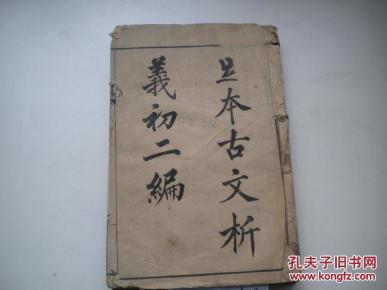 足本古文析
義初二編
孔夫子旧书网